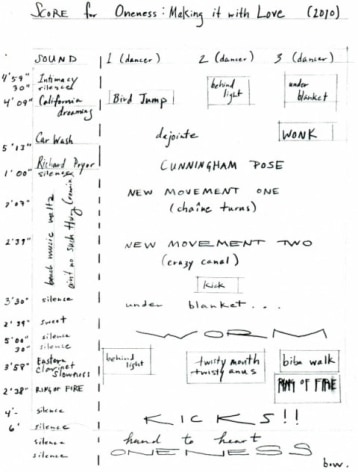 SCORE for Oneness: Making it with Love (2010)
SOUND 1 (dancer) 2 (dancer) 3 (dancer)
4'59" Intimacy
30" silence
behind light
under blanket
4'09" California dreaming
Bird Jump
Car Wash dejointe WONK
5'13"
Richard Pryor
1'00" silence
CUNNINGHAM POSE
NEW MOVEMENT ONE
(chaîne turns)
2'07"
beach music waltz
aint no such thing
2'39"
NEW MOVEMENT TWO
(crazy canal)
kick
3'30" silence under blanket...
2'39" sweet
WORM
5'00" silence
30" silence
3'58" Eastern clarinet slowness
behind light
twisty mouth
twisty anus
biba walk
2'38" RING OF FIRE RING OF FIRE
4'- silence
KICKS!!
6' silence
silence hand to heart
silence ONENESS
bow.